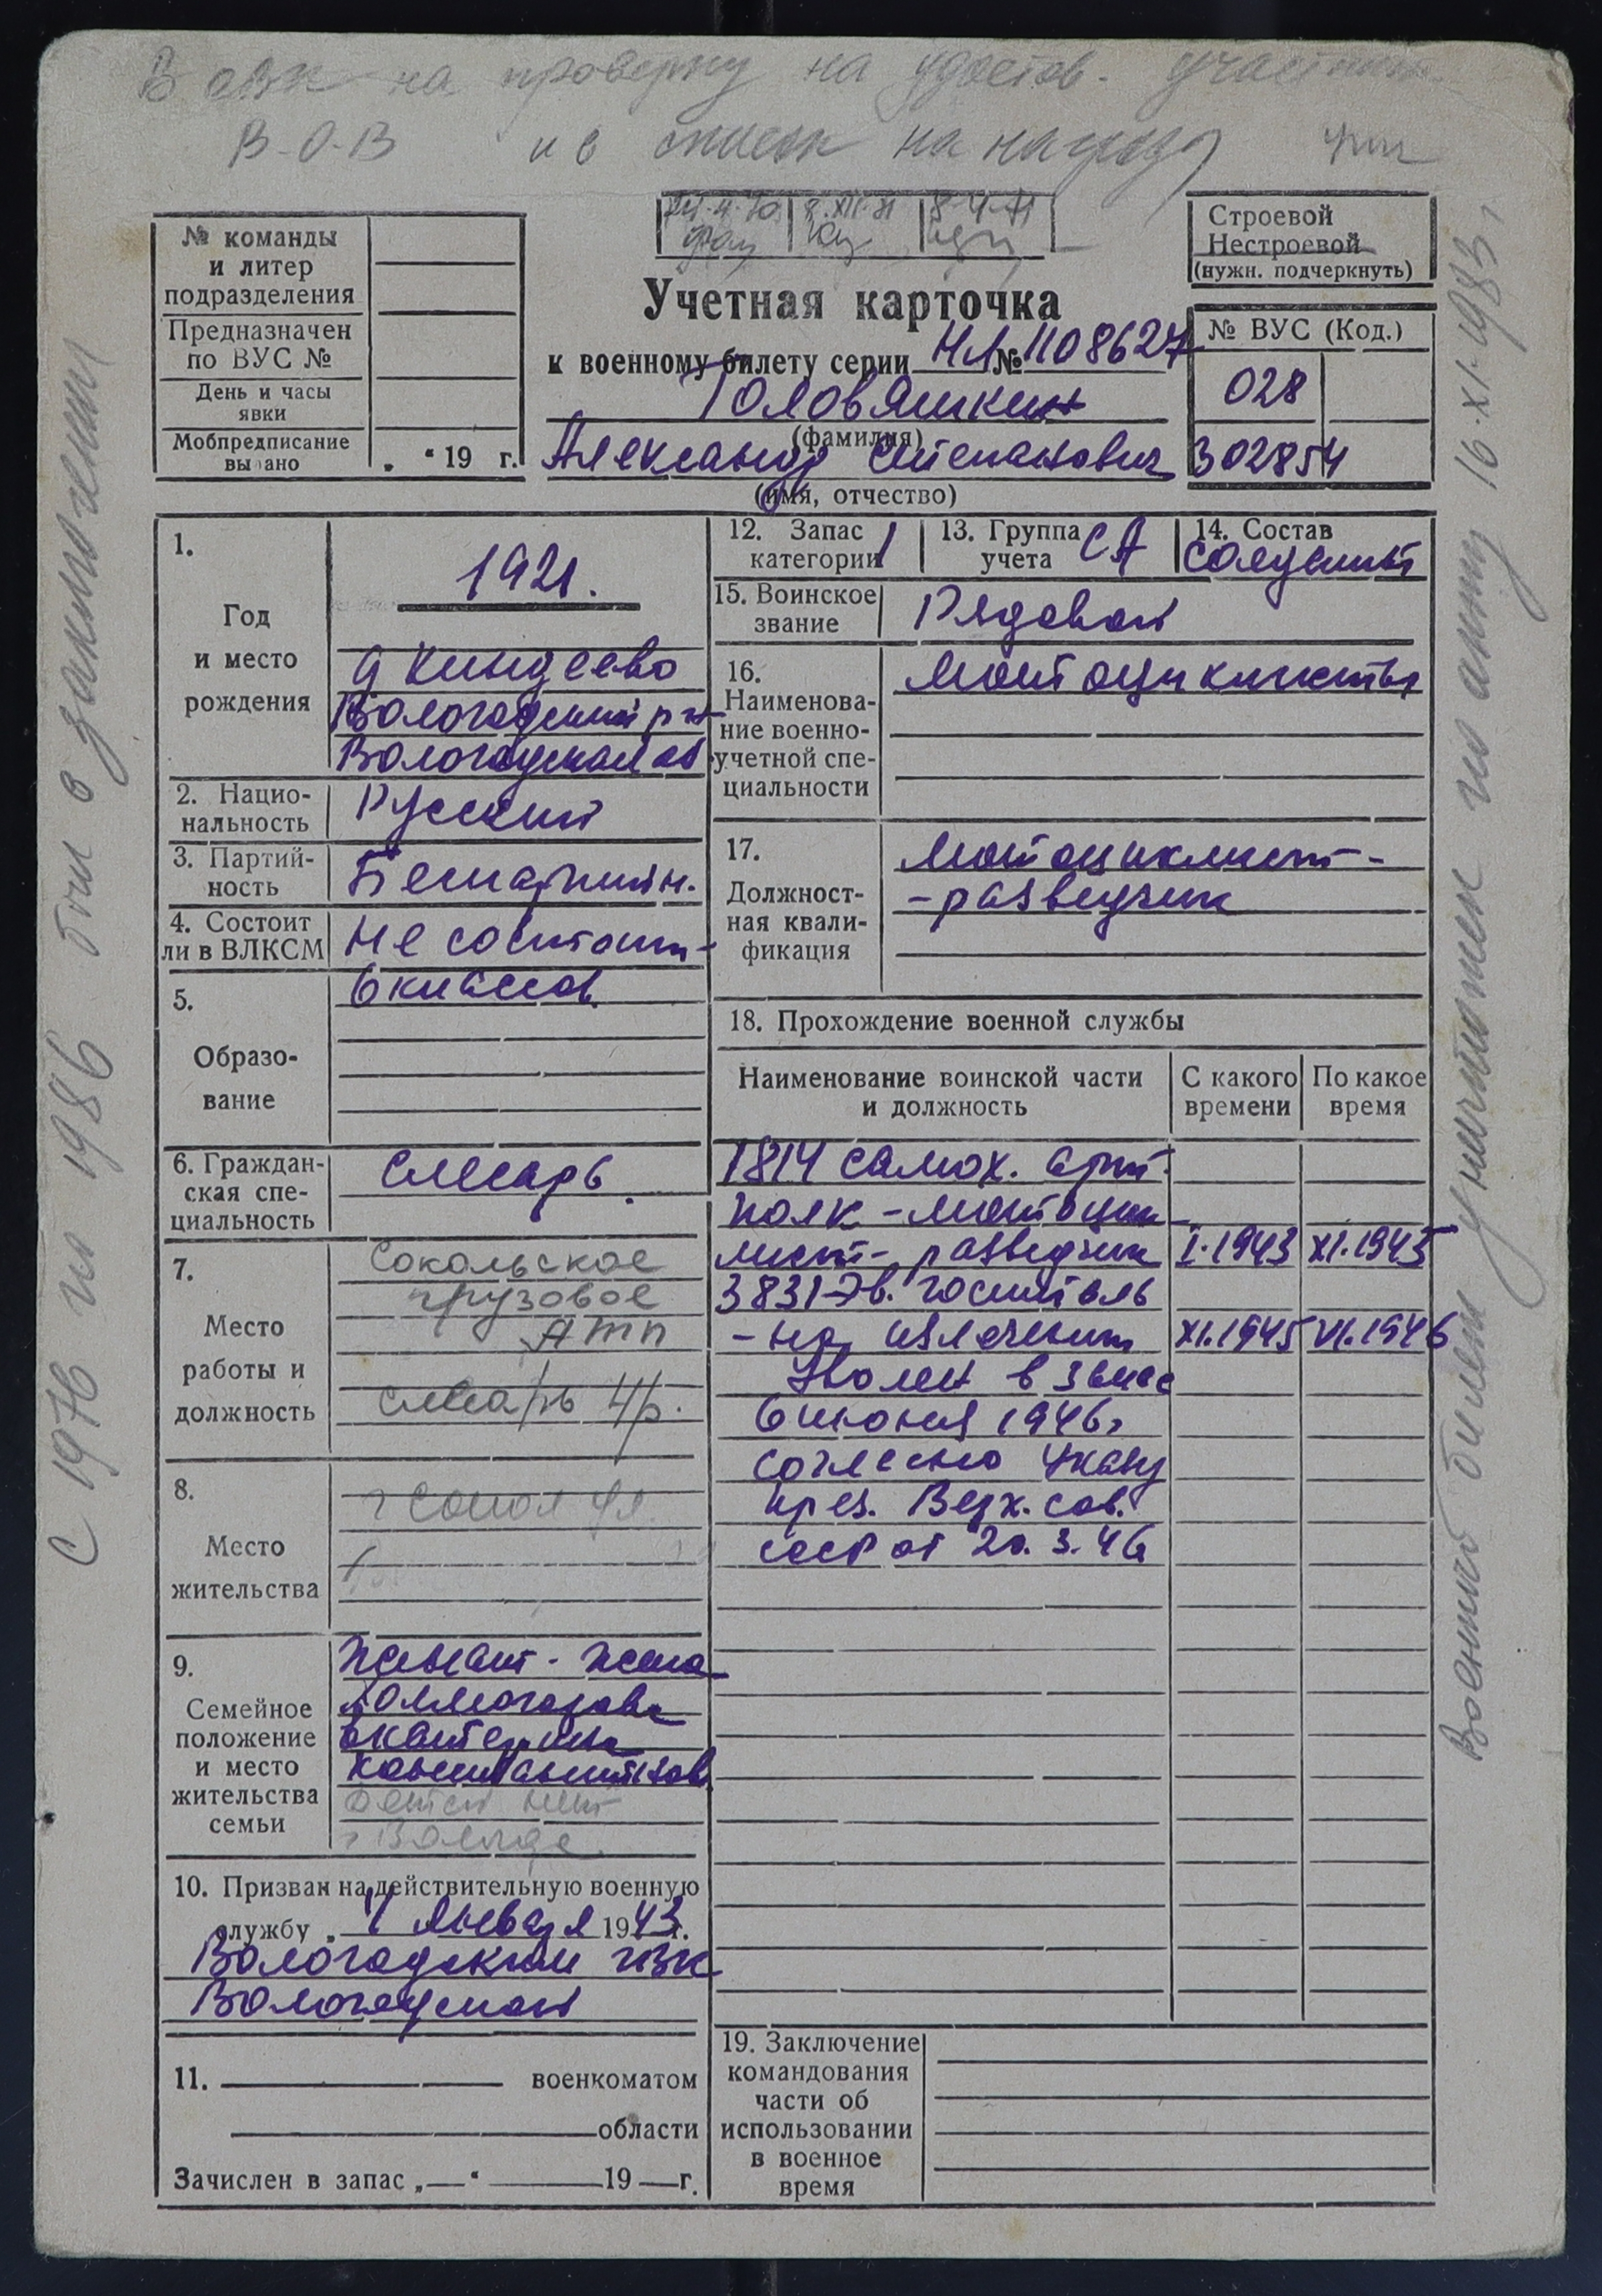 В ОВК на проверку на удостов. участника
В-О-В и в список на награду
№ команды
и литер
подразделения
Предназначен
по ВУС №
День и часы
явки
Мобпредписание
вы ано
„ “ 19 г.
Строевой
Нестроевой
(нужн. подчеркнуть)
Учетная карточка
к военному билету серии НЛ № 1108627
Головяшкин
(фамилия)
Александр Степанович
(имя, отчество)
№ ВУС (Код.)
028
302854
1.
Год
и место
рождения
1921.
д Киндеево
Вологодский р-н
Вологодская об
2. Нацио-
нальность
Русский
3. Партий-
ность
Беспартийн.
4. Состоит
ли в ВЛКСМ
Не состоит
5.
Образо-
вание
6 классов
6. Граждан-
ская спе-
циальность
Слесарь
7.
Место
работы и
должность
Сокольское
грузовое
АТП
слесарь 4/р.
8.
Место
жительства
г Сокол ул.
9.
Семейное
положение
и место
жительства
семьи
Женат - жена
Екатерина
Константинов
Детей нет
г Вологде
10. Призван на действительную военную
службу „ 4 января 1943 г.
Вологодским ГВК
Вологодской
11. военкоматом
области
Зачислен в запас „—“ 19 — г.
12. Запас
категории 1
13. Группа
учета СА
14. Состав
солдаты
15. Воинское
звание
Рядовой
16.
Наименова-
ние военно-
учетной спе-
циальности
Мотоциклисты
17.
Должност-
ная квали-
фикация
Мотоциклист-
-разведчик
18. Прохождение военной службы
Наименование воинской части
и должность
С какого
времени
По какое
время
1814 самох. арт.
полк - мотоцик
лист- разведчик I.1943 XI.1945
3831 Эв. госпиталь
- на излечении XI.1945 VI.1946
Уволен в запас
6 июня 1946г
согласно Указу
през. Верх. сов.
СССР от 20.3.46
19. Заключение
командования
части об
использовании
в военное
время
С 1976 по 1986 был в заключении
Военный билет уничтожен по акту 16.XI.1983 г